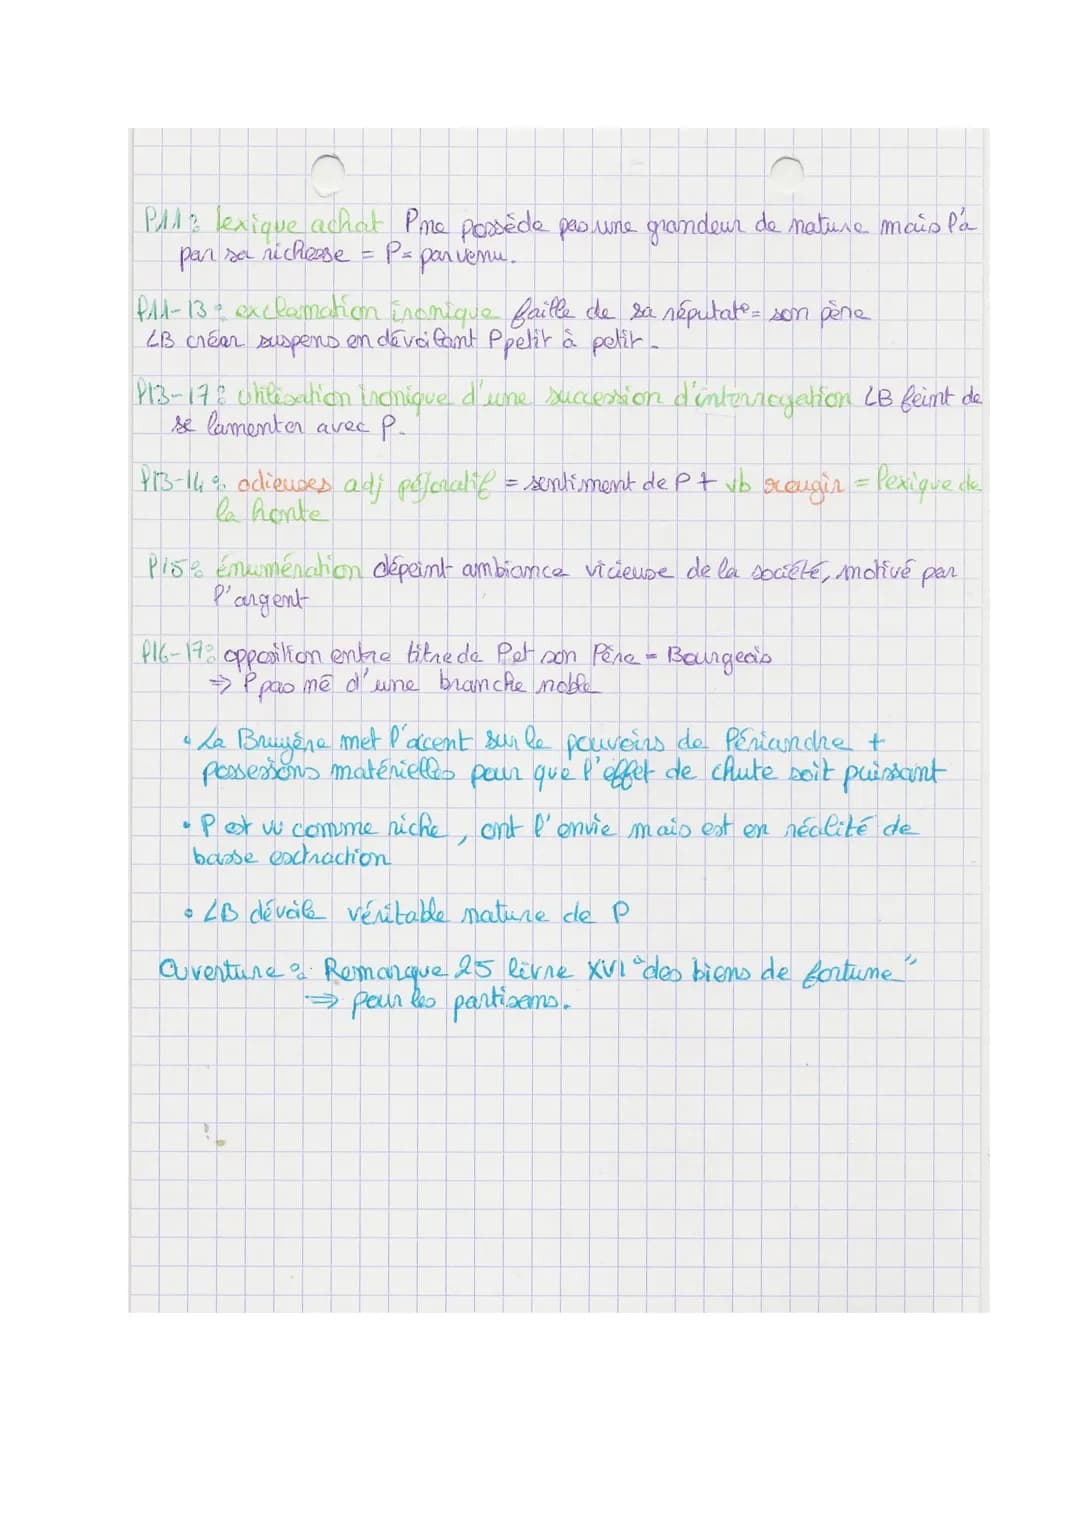 l11 : lexique achat P ne possède pas une grandeur de nature mais l'a
par sa richesse = P = parvenu.
l11-13 : exclamation ironique faille de sa réputat° = son père
LB créer suspens en dévoilant P petit à petit.
l13-17 : utilisation ironique d'une succession d'interrogation LB feint de
se lamenter avec P.
l13-14 : odieuses adj péjoratif = sentiment de P + vb rougir = lexique de
la honte
l15 : énumération dépeint ambiance vicieuse de la société, motivé par
l'argent
l16-17 : opposition entre titre de P et son Père = Bourgeois
⇒ P pas né d'une branche noble
• La Bruyère met l'accent sur le pouvoirs de Périandre +
possessions matérielles pour que l'effet de chute soit puissant
• P est vu comme riche, ont l'envie mais est en réalité de
basse extraction
• LB dévoile véritable nature de P
Ouverture : Remarque 25 livre XVI "des biens de fortune"
⇒ pour les partisans.